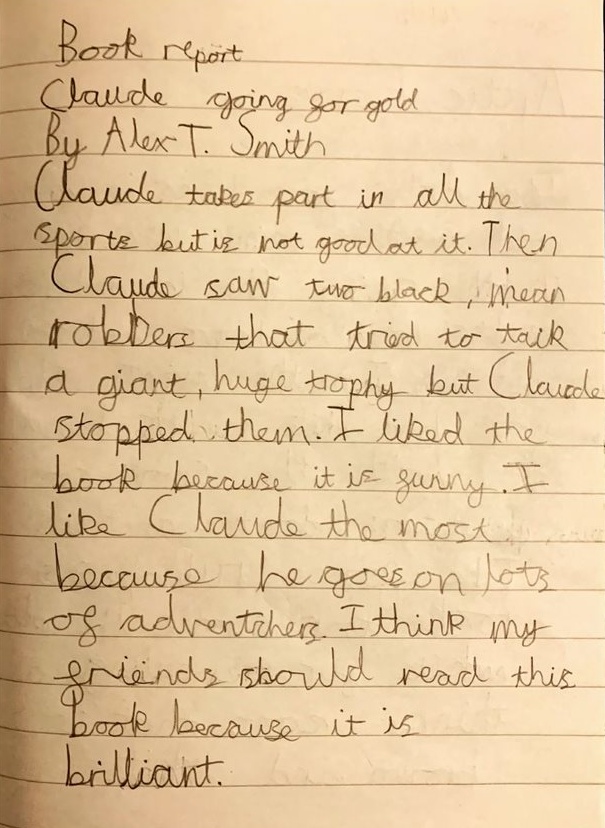 Book report
Claude going for gold
By Alex T. Smith
Claude takes part in all the
sports but is not good at it. Then
Claude saw two black, mean
robbers that tried to taik
a giant, huge trophy but Claude
stopped them. I liked the
book because it is funny. I
like Claude the most
because he goes on lots
of adventchers. I think my
friends should read this
book because it is
brilliant.